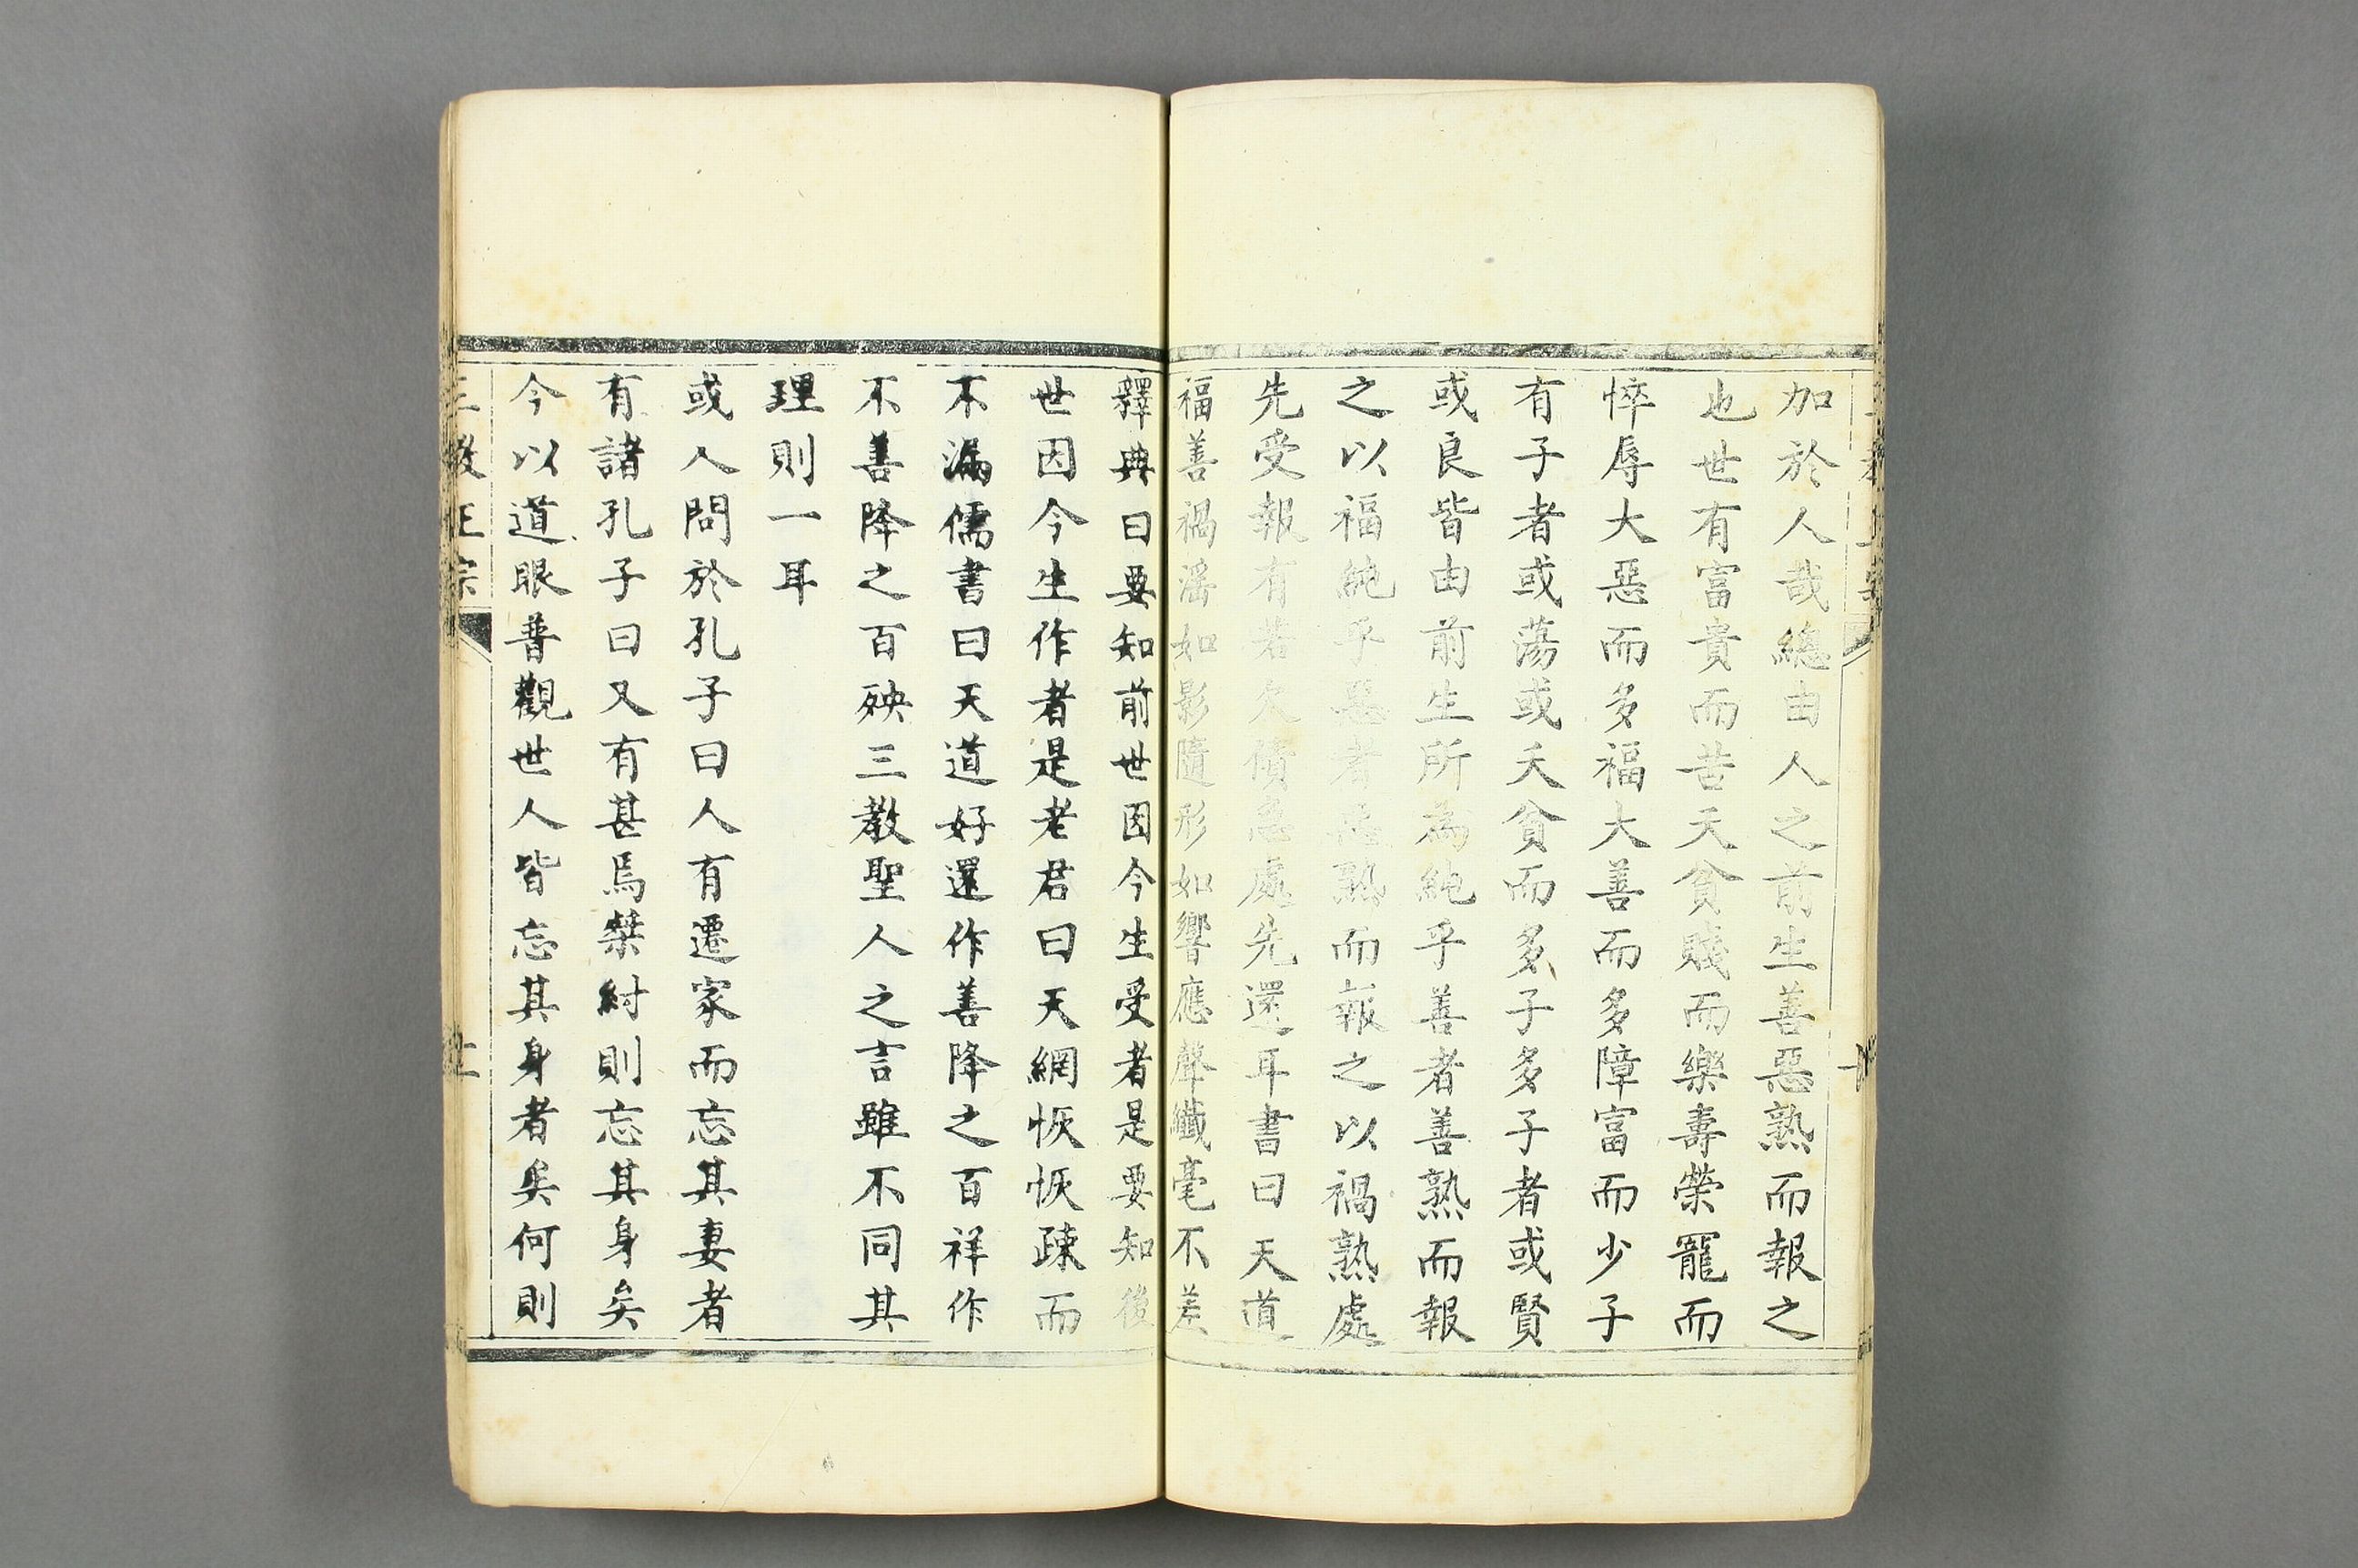 加於人哉總由人之前生善惡熟而報之
也世有富貴而苦夭貧賤而樂壽榮寵而
悴辱大惡而多福大善而多障富而少子
有子者或蕩或夭貧而多子多子者或賢
或良皆由前生所為純乎善者善熟而報
之以福純乎惡者惡熟而報之以禍熟處
先受報有若欠債急處先還耳書曰天道
福善禍滛如影隨形如響應聲纖毫不差
釋典曰要知前世因今生受者是要知後
世因今生作者是老君曰天網恢恢疎而
不漏儒書曰天道好還作善降之百祥作
不善降之百殃三教聖人之言雖不同其
理則一耳
或人問於孔子曰人有遷家而忘其妻者
有諸孔子曰又有甚焉桀紂則忘其身矣
今以道眼普觀世人皆忘其身者矣何則
三教正宗